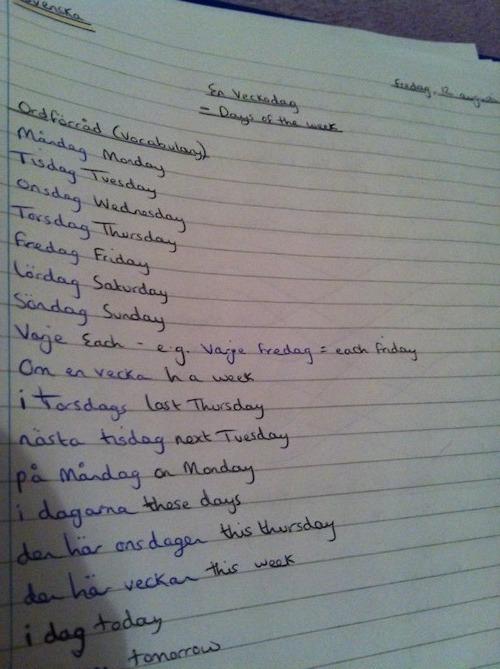 Svenska
Fredag, 12 augusti
En Veckodag
= Days of the week
Ordförråd (Vocabulary)
Måndag Monday
Tisdag Tuesday
Onsdag Wednesday
Torsdag Thursday
Fredag Friday
Lördag Saturday
Söndag Sunday
Varje Each - e.g. Varje fredag = each friday
Om en vecka h a week
i Torsdags last Thursday
nästa tisdag next Tuesday
på Måndag on Monday
i dagarna these days
den här onsdagen this thursday
den här veckan this week
i dag today
tomorrow